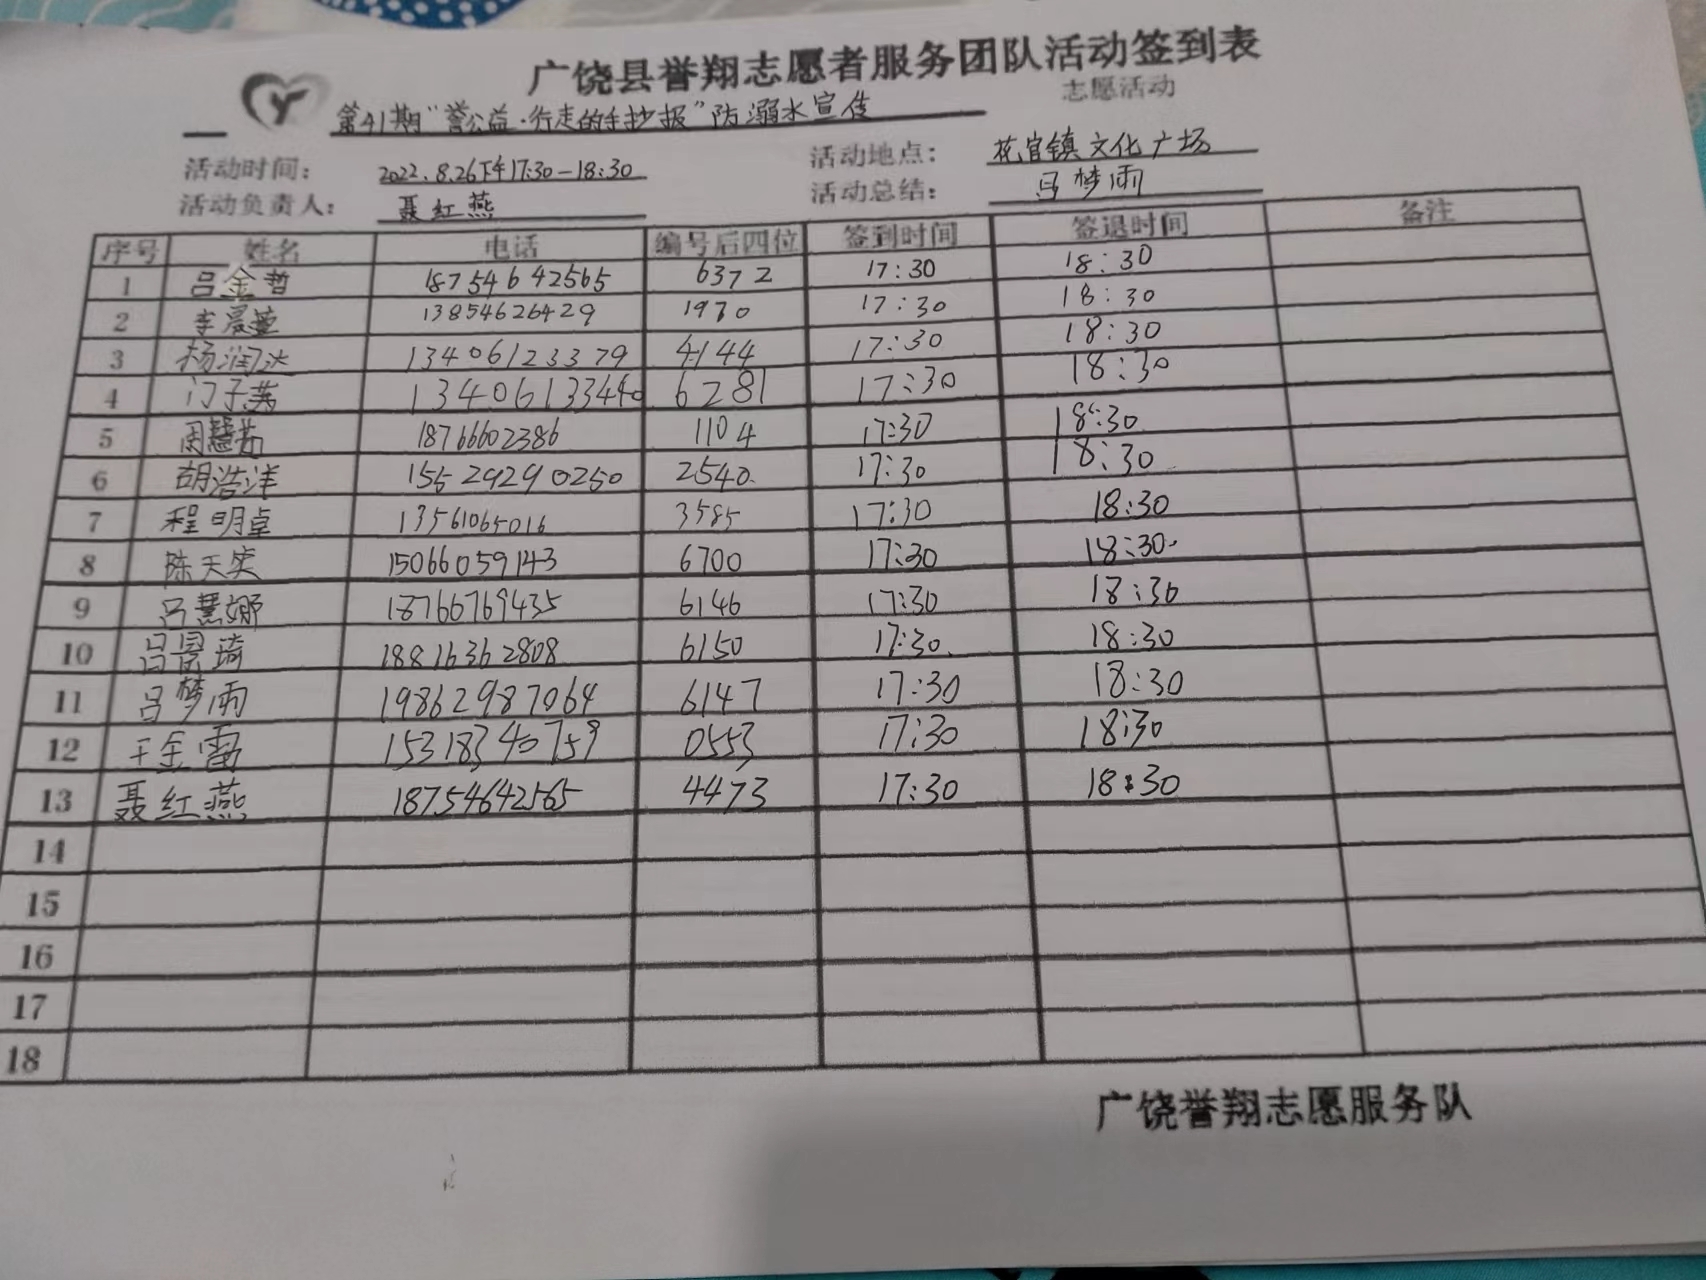 广饶县誉翔志愿者服务团队活动签到表
第41期“誉公益·行走的手抄报”防溺水宣传 志愿活动
活动时间： 2022.8.26下午17:30-18:30 活动地点： 花官镇文化广场
活动负责人： 聂红燕 活动总结： 吕梦雨
序号 姓名 电话 编号后四位 签到时间 签退时间 备注
1 吕金哲 18754642565 6372 17:30 18:30
2 李晨萱 13854626429 1970 17:30 18:30
3 杨润达 13406123379 4144 17:30 18:30
4 门子茜 13406133440 6281 17:30 18:30
5 周慧茹 18766602386 1104 17:30 18:30
6 胡浩洋 15529290250 2540 17:30 18:30
7 程明卓 13561065016 3585 17:30 18:30
8 陈天奕 15066059143 6700 17:30 18:30
9 吕慧娜 18766769435 6146 17:30 18:30
10 吕景琦 18816362808 6150 17:30 18:30
11 吕梦雨 19862987064 6147 17:30 18:30
12 王金雷 15318340759 0553 17:30 18:30
13 聂红燕 18754642565 4473 17:30 18:30
14
15
16
17
18
广饶誉翔志愿服务队